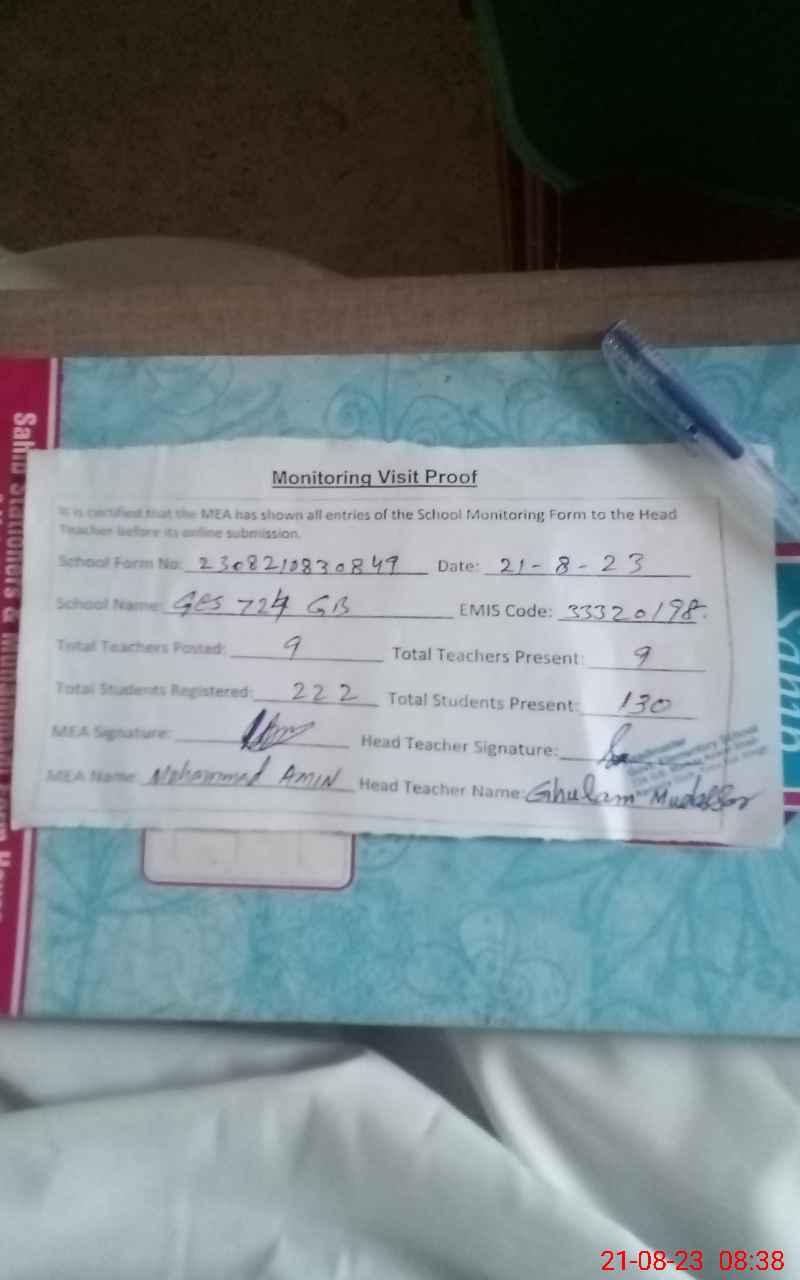 Monitoring Visit Proof
It is certified that the MEA has shown all entries of the School Monitoring Form to the Head
Teacher before its online submission.
School Form No: 2308210830849 Date: 21-8-23
School Name: GES 724 GB EMIS Code: 33320198
Total Teachers Posted: 9 Total Teachers Present: 9
Total Students Registered: 222 Total Students Present: 130
MEA Signature: Head Teacher Signature:
MEA Name: Mohammad AMIN Head Teacher Name: Ghulam Mudassar
Sahib Stationers &
21-08-23 08:38